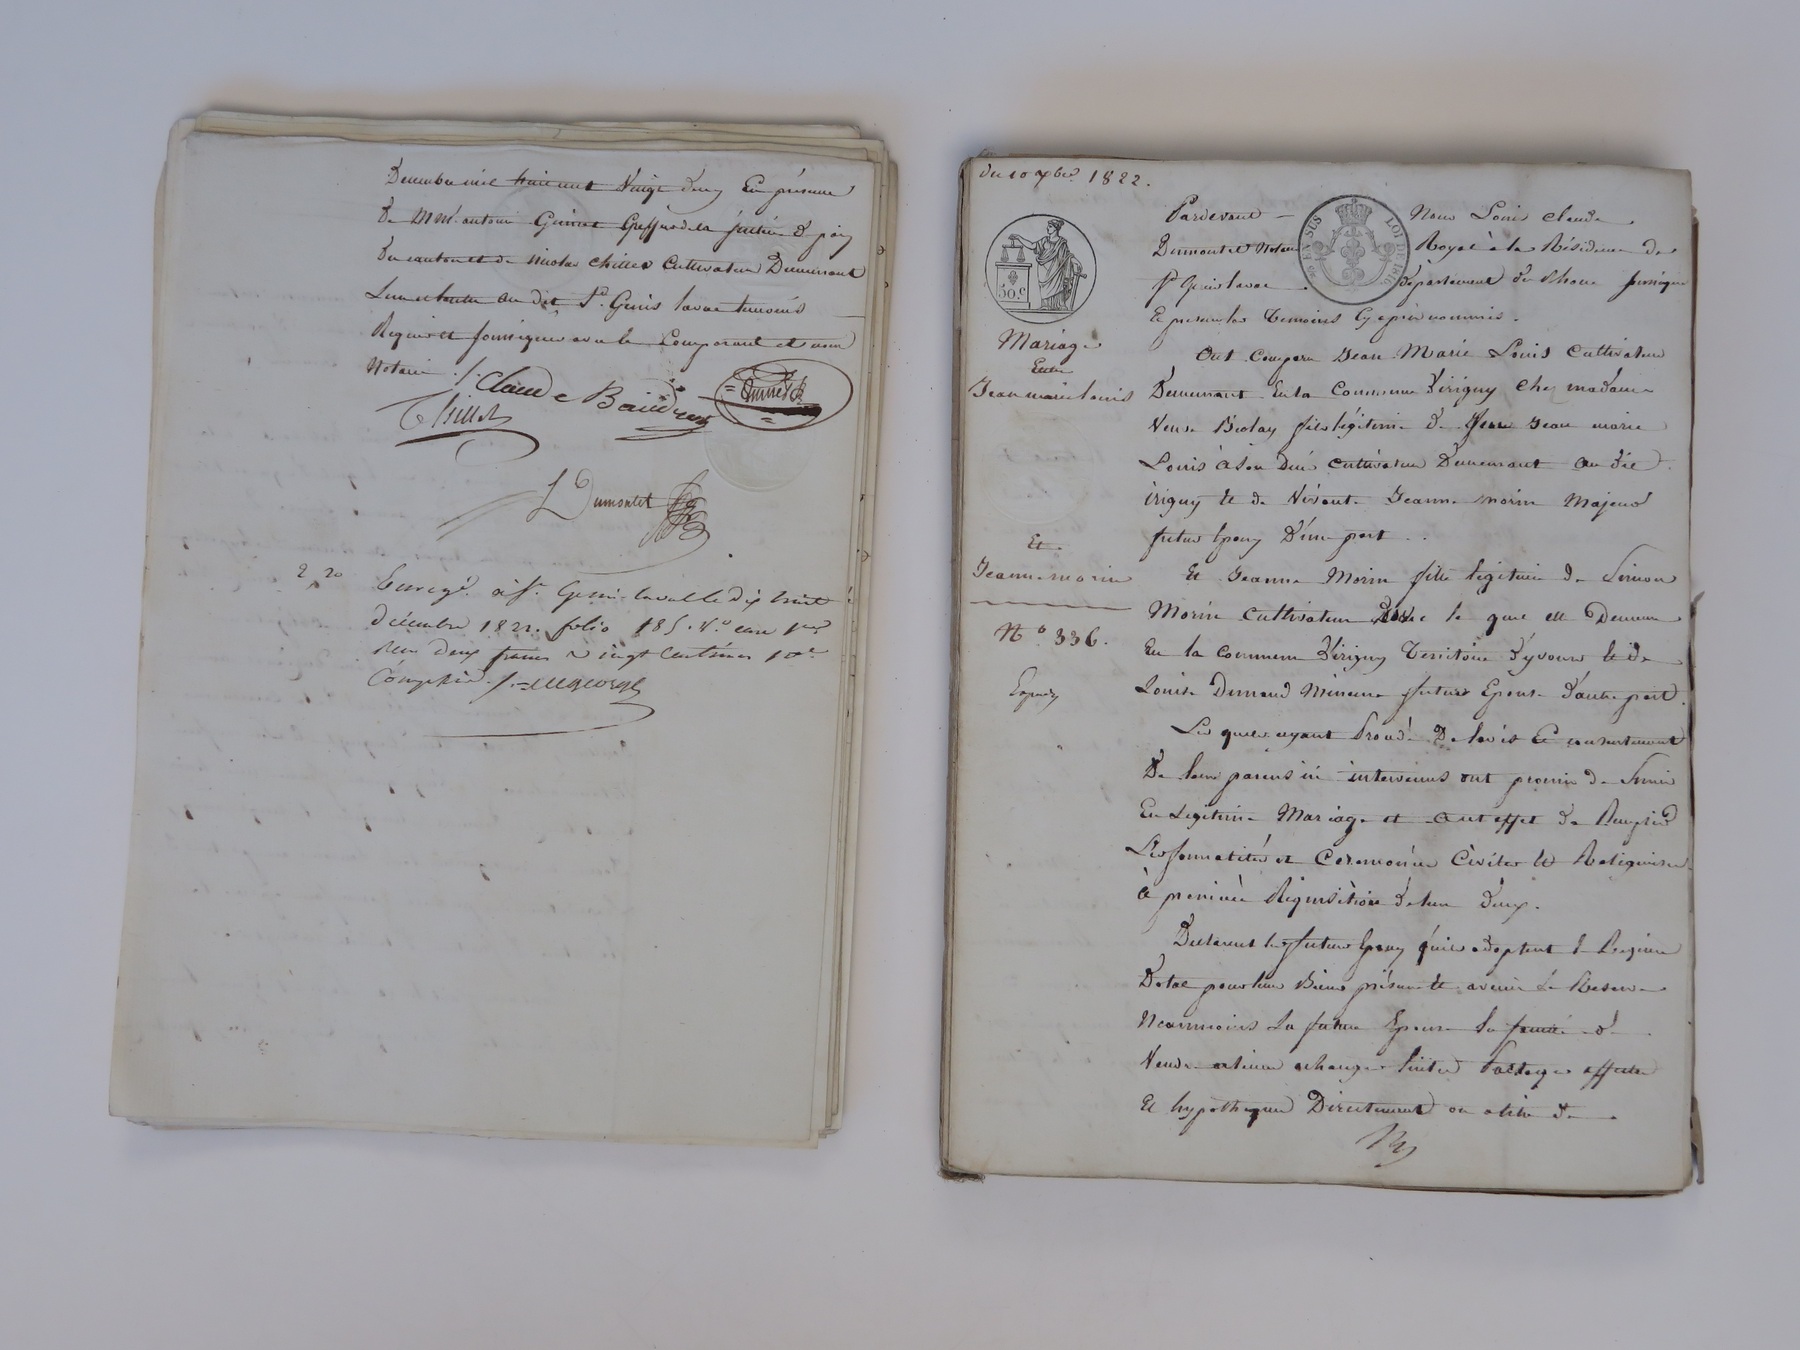 Decembre mil huit cent Vingt deux En présence
de Mrs. antoine Guinet Greffier de la justice de paix
du canton et de nicolas chillet Cultivateur Demeurant
L'un et l'autre au dit St. Genis laval temoins
Requis et soussignés avec le Comparant et nous
Notaire ./.
Claude Baudran
Guinet
Chillet
L Dumontet
2, 20
Enregé. à St. Genis-laval le dix huit
décembre 1822. folio 185. Vo. case 1ere
reçu deux francs vingt centimes 10e
Compris ./.
du 10 Xbre 1822.
50 c
EN SUS
LOI DE
Mariage
Entre
Jean marie Louis
Et
Jeanne morin
No 336.
Expedié
Pardevant Nous Louis Claude
Dumontet Notaire Royal à la Résidence de
St Genis laval Département du Rhone soussigné
Et presens les Temoins Cy après nommés.
Ont Comparu Jean Marie Louis Cultivateur
Demeurant En la Commune d'irigny chez madame
Veuve Biolay fils légitime de feu Jean marie
Louis à son Decès cultivateur Demeurant au dit
irigny Et de Vivante Jeanne morin Majeur
futur Epoux D'une part.
Et Jeanne Morin fille legitime de Simon
Morin Cultivateur avec le quel elle Demeure
En la Commune d'irigny Territoire d'yvours Et de
Louise Dumond Mineure future Epouse d'autre part.
Les quels ayant Procédé De lavis Et consentement
De leurs parens ici intervenus ont promis de S'unir
En Légitime Mariage et a cet effet de Remplir
Les formalités et Ceremonies Civiles Et Religieuses
à premiere Réquisition de l'un d'eux.
Declarent les futurs Epoux qu'ils adoptent le Regime
Dotal pour leurs Biens présens Et avenir Se Réserve
Neanmoins La future Epouse la faculté de
Vendre aliener echanger liciter Partager affecter
Et hypothequer Directement